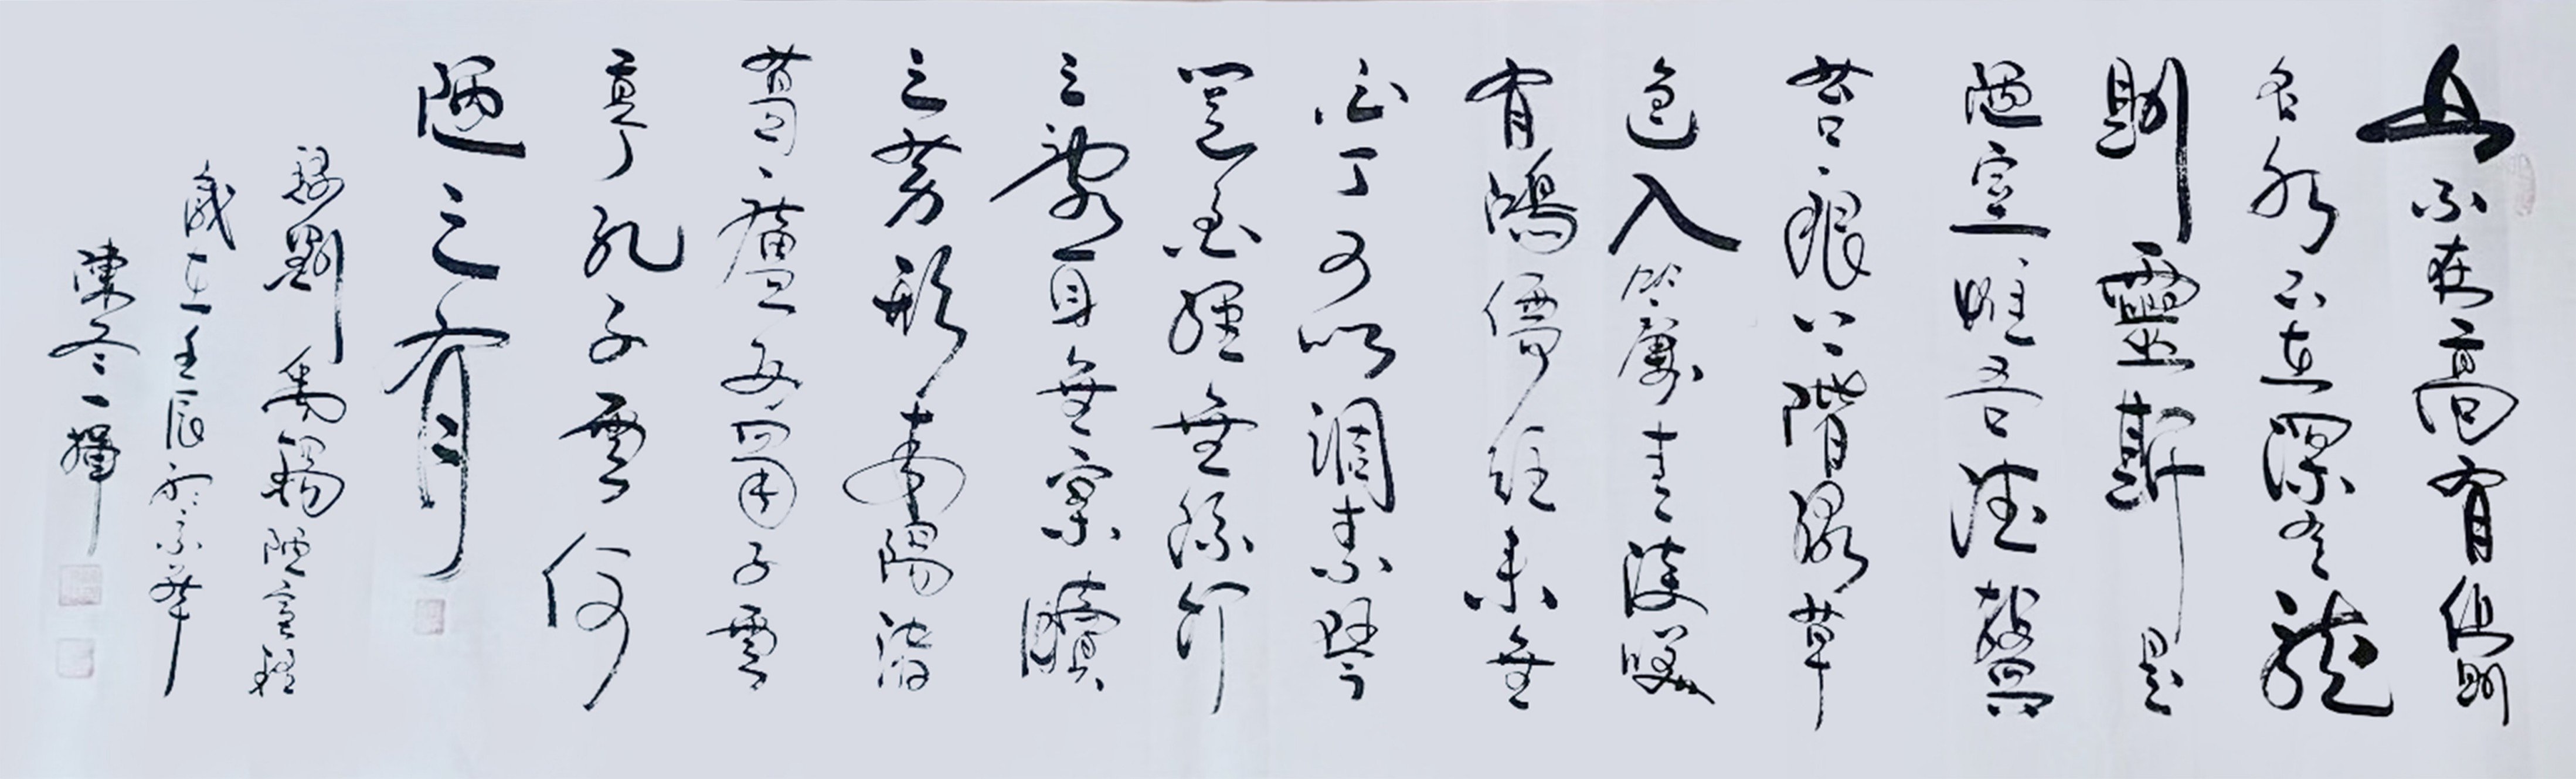 山不在高有仙則
名水不在深有龍
則靈斯是
陋室惟吾德馨
苔痕上階綠草
色入簾青談笑
有鴻儒往來無
白丁可以調素琴
閱金經無絲竹
之亂耳無案牘
之勞形南陽諸
葛廬西蜀子雲
亭孔子雲何
陋之有
錄劉禹錫陋室銘
歲在壬辰於京華
陳冬一揮